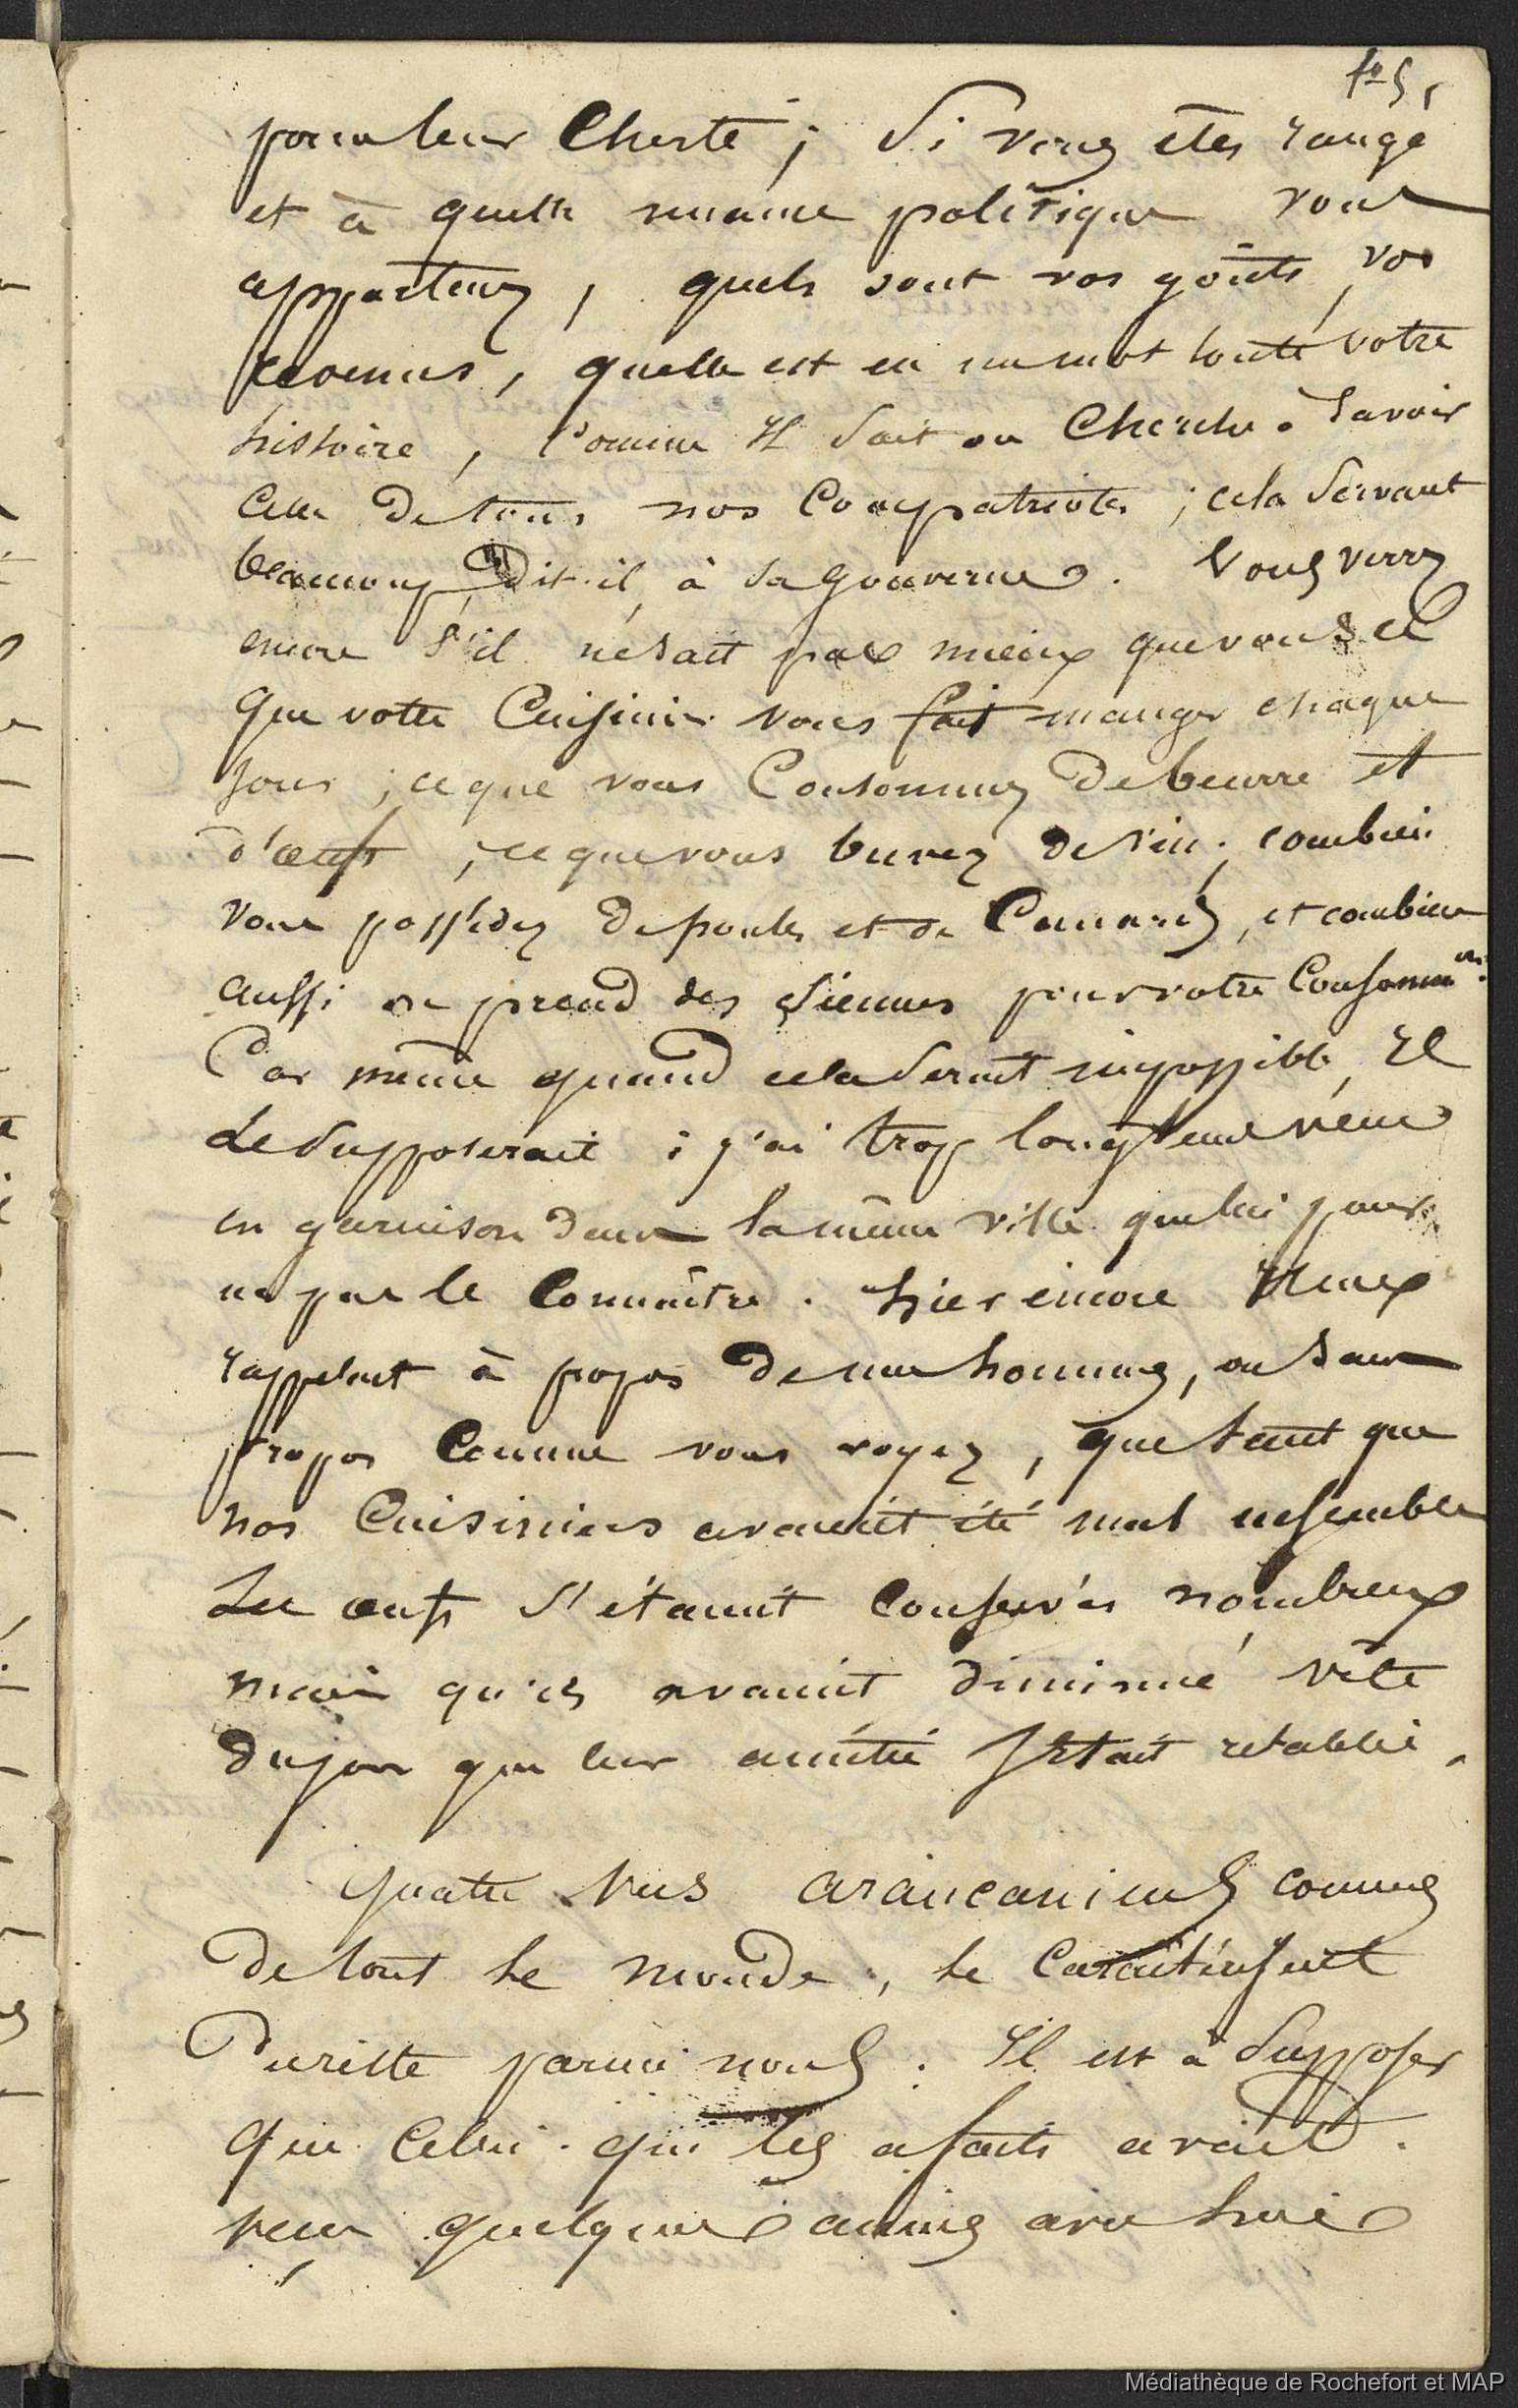 fo 5,
pour leur Cherté ; Si vous êtes rangé
et à quelle nuance politique vous
appartenez, quels sont vos goûts, vos
revenus, quelle est en un mot toute votre
histoire, Comme Il Sait ou Cherche à Savoir
Celle de tous nos Compatriotes ; cela Servant
beaucoup, dit-il, à sa gouverne. Vous verrez
encore s'il ne sait pas mieux que vous ce
que votre Cuisinier vous fait manger chaque
Jour ; ce que vous Consommez de beurre et
d'œufs ; ce que vous buvez de vin ; combien
vous possédez de poules et de Canards, et combien
aussi on prend des siennes pour votre Consommon.
Car même quand cela Serait impossible, Il
le Supposerait ; j'ai trop longtems vécu
en garnison dans la même ville que lui pour
ne pas le Connaître. hier encore Il me
rappelait à propos de nos hommes, ou sans
propos Comme vous voyez, que tant que
nos Cuisiniers avaient été mal ensemble
Les œufs S'étaient Conservés nombreux
mais qu'ils avaient diminué vite
du jour que leur amitié S'était rétablie.
quatre vers araucaniens connus
de tout le monde, le
parmi nous. Il est à Supposer
que Celui qui les a faits avait
vécu quelques années avec lui
Médiathèque de Rochefort et MAP